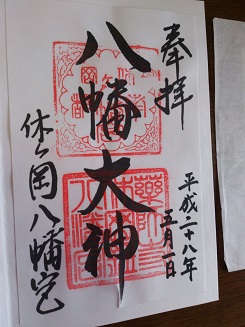 奉拝
平成二十八年
五月一日
八幡大神
休ヶ岡八幡宮